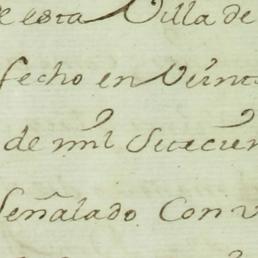 e esta Villa de
fecho en Veint
de mil Setecien
Señalado Con